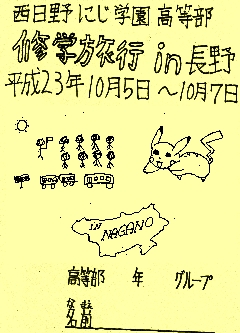 西日野にじ学園 高等部
修学旅行 in 長野
平成23年10月5日～10月7日
IN NAGANO
高等部 年 グループ
なまえ
名前